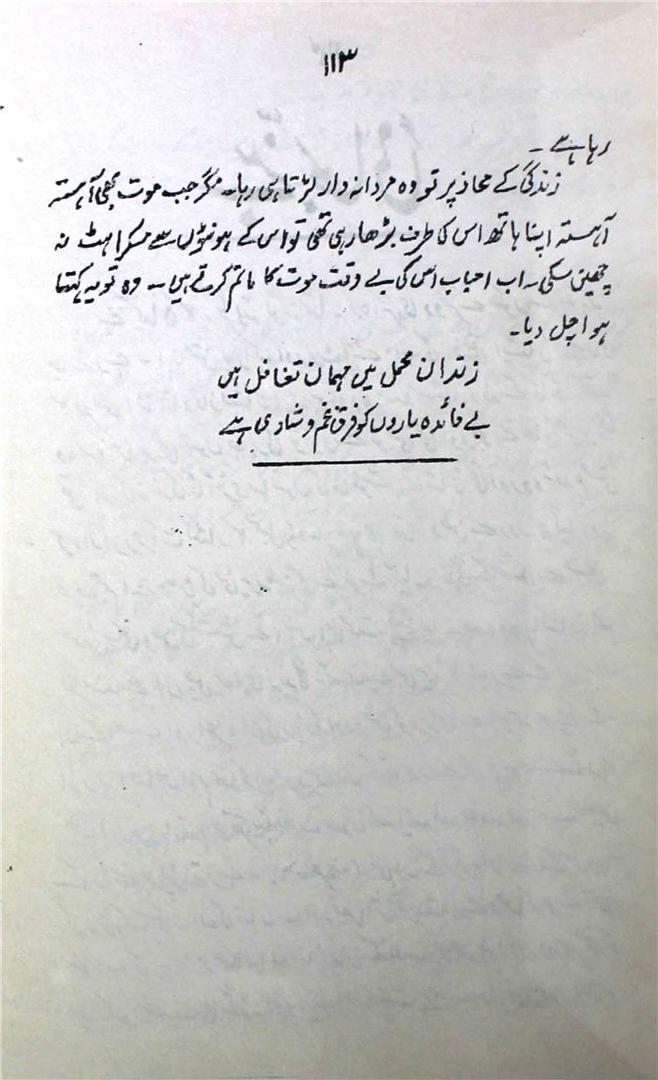 ۱۱۳
رہا ہے۔
زندگی کے محاذ پر تو وہ مردانہ وار لڑتا ہی رہا۔ مگر جب موت بھی آہستہ
آہستہ اپنا ہاتھ اس کی طرف بڑھا رہی تھی تو اس کے ہونٹوں سے مسکراہٹ نہ
چھین سکی۔ اب احباب اس کی بے وقت موت کا ماتم کرتے ہیں۔ وہ تو یہ کہتا
ہوا چل دیا۔
زندان محمل میں مہمان تغافل ہیں
بے فائدہ یاروں کو فرق غم و شادی ہے